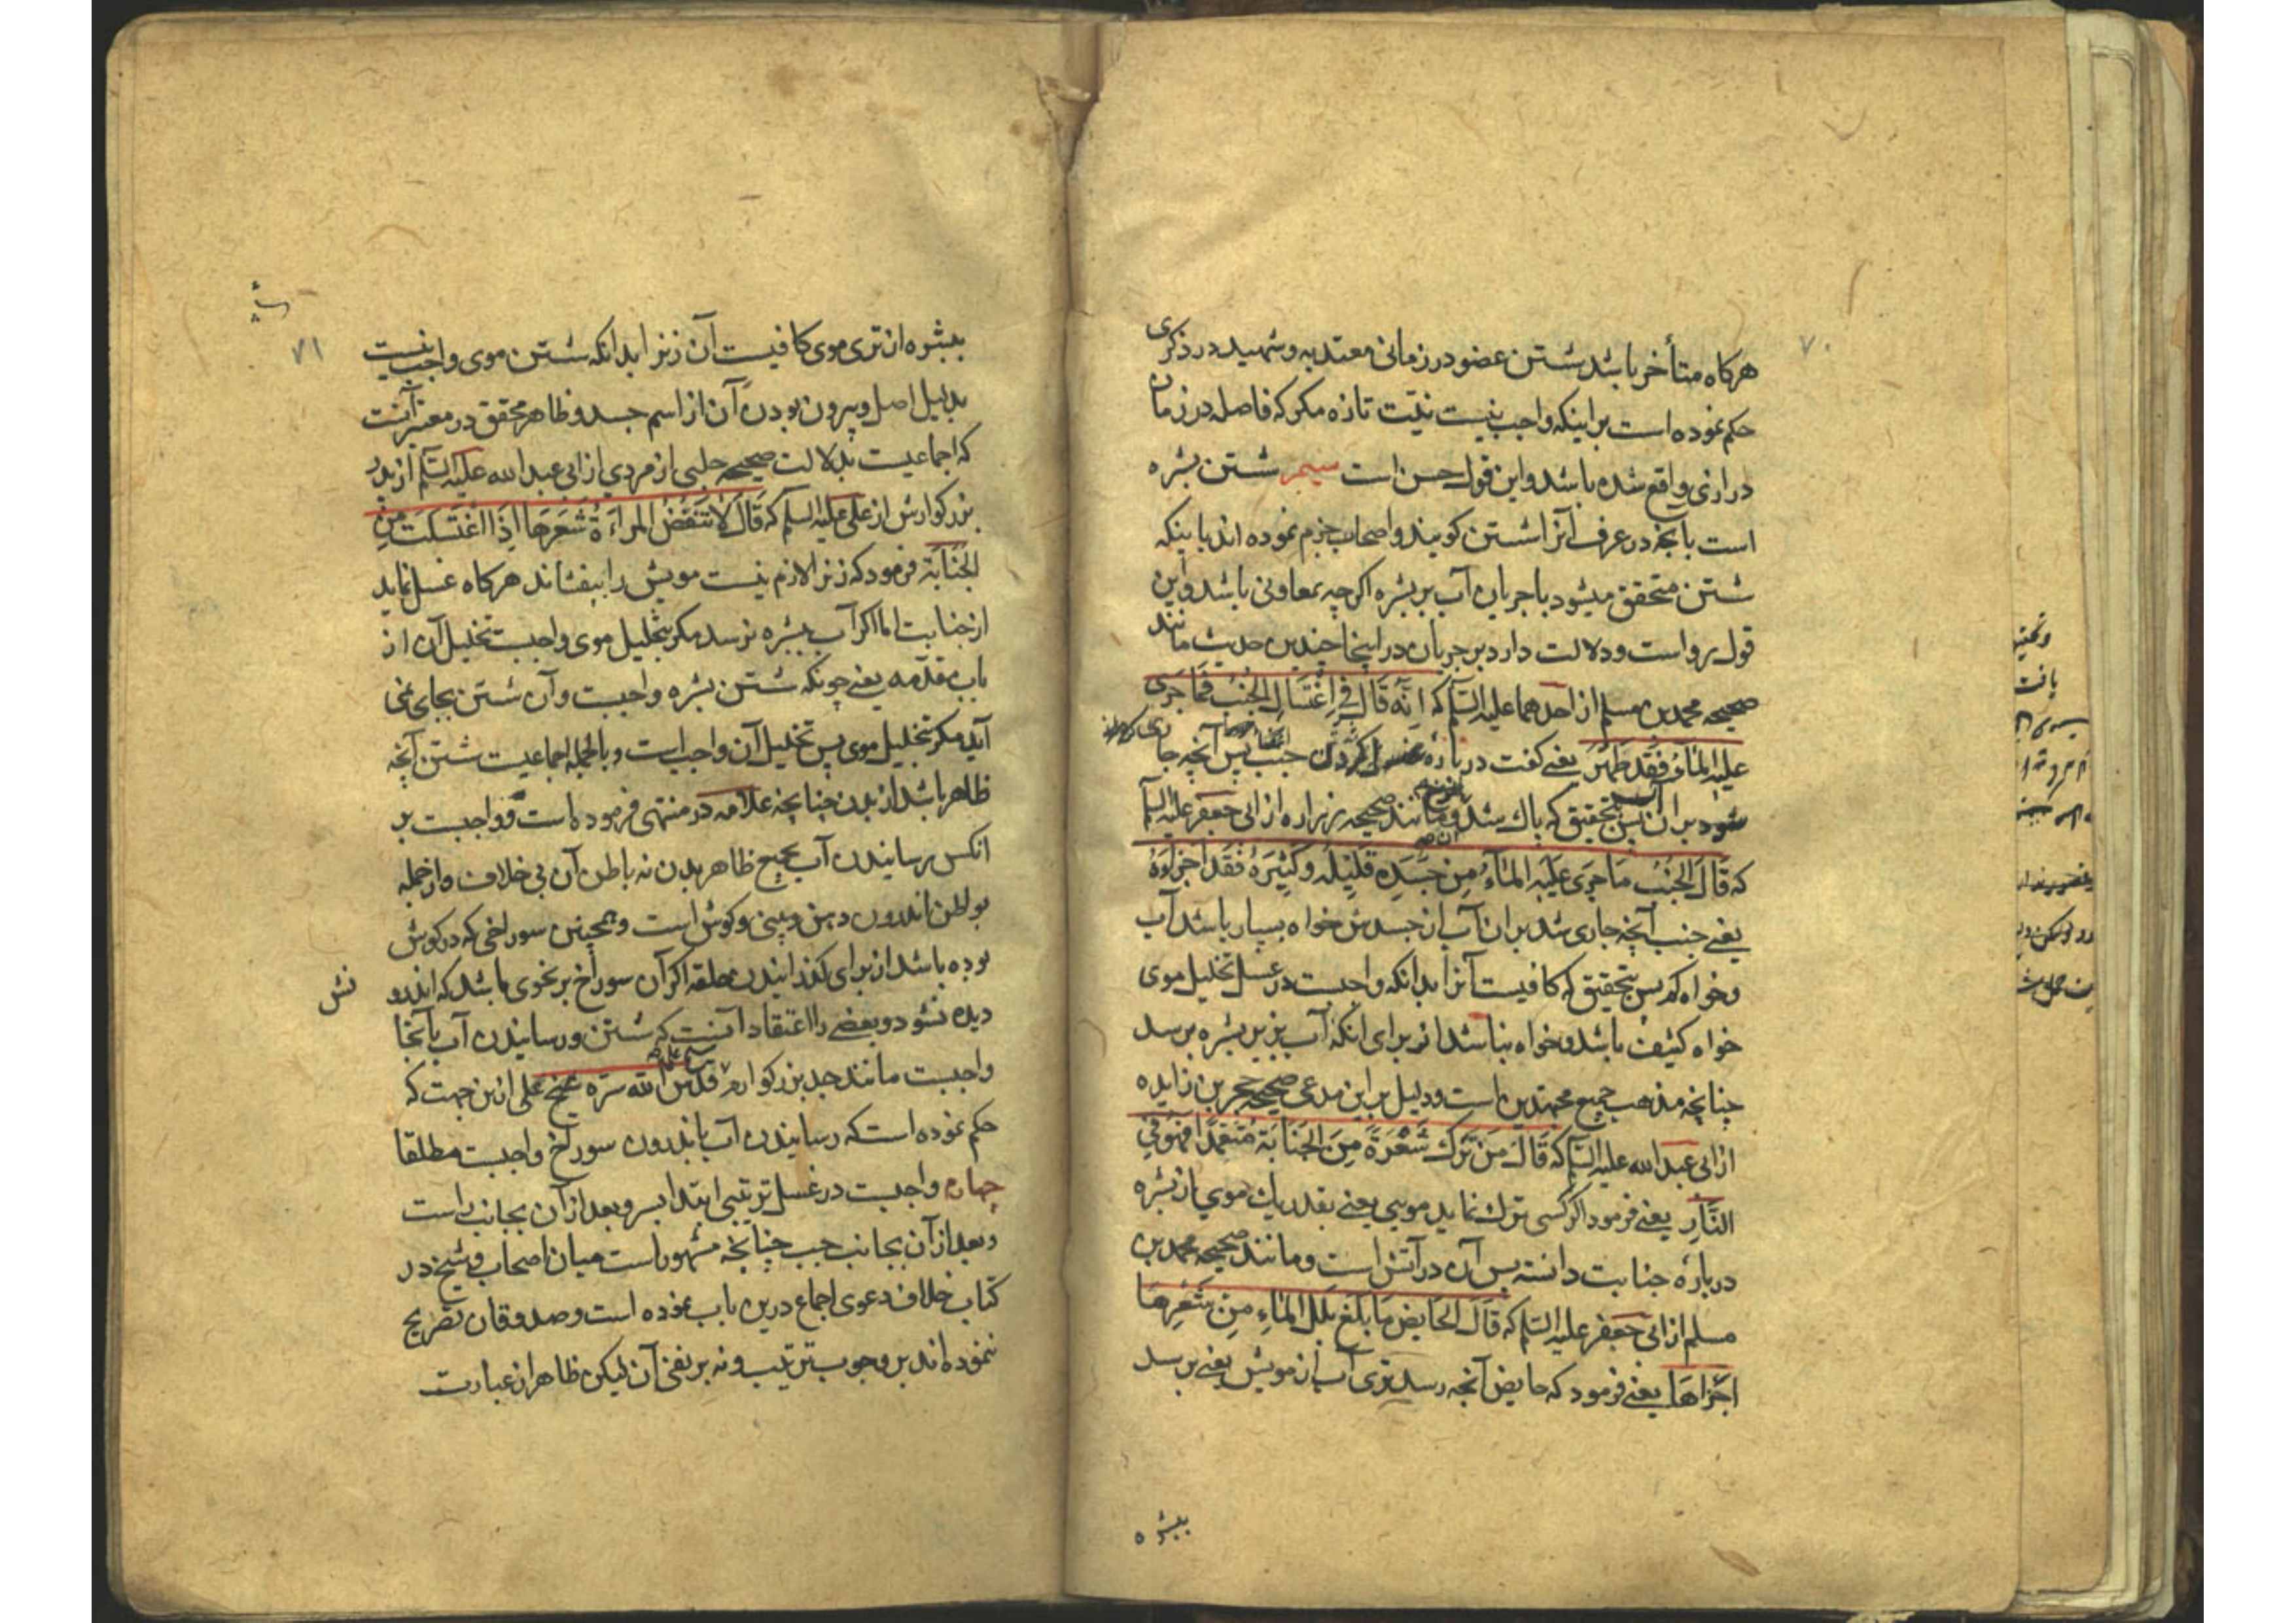 ۷۰
هرکاه متأخر باشد شستن عضو در زمانی معتد به و شهید در ذکری
حکم نموده است بر اینکه واجب نیست نیّت تازه مکر که فاصله در زمان
درازی واقع شده باشد و این قول حسن است سیم شستن بشره
است بآنچه در عرف آنرا شستن کویند و اصحاب جزم نموده اند باینکه
شستن متحقق میشود با جریان آب بر بشره اکرچه بمعاونی باشد و این
قول برواست و دلالت دارد بر جریان در اینجا چندین حدیث مانند
صحیحه محمد بن مسلم از احدهما علیه السّلم که انّه قَالَ فِی اِغْتِسَالِ الجُنُبِ فَمَا جَرَی
علیه الماء فَقَد طَهُرَ یعنی کفت در باره غسل کردن جنب پس آنچه جاری
شود بر آن آب پس بتحقیق که پاک شد و مانند صحیحه زراره از ابی جعفر علیه السلم
که قَالَ الجُنُب مَا جَرَی عَلَیْهِ المَاءُ مِن جَسَدِه قَلِیْلِه وکَثِیْرِه فَقَد اَجْزَاَه
یعنی جنب آنچه جاری شد بر ان آب از جسدش خواه بسیار باشد آب
وخواه کم پس بتحقیق که کافیست آنرا بدانکه واجبست در غسل تخلیل موی
خواه کثیف باشد و خواه نباشد از برای آنکه آب بزیر بشره برسد
چنانچه مذهب جمیع مجتهدین است و دلیل بر این مدعی صحیحه حجر بن زایده
از ابی عبد الله علیه السّلم که قَالَ مَن تَرَکَ شَعْرَةً مِنَ الجَنَابَةِ مُتَعَمِّدًا فَهُوَ فِی
النَّارِ یعنی فرمود اکر کسی ترک نماید مویی یعنی بقدر یک موی از بشره
در باره جنابت دانسته پس آن در آتش است و مانند صحیحه محمد بن
مسلم از ابی جعفر علیه السّلم که قَالَ الحَایض مَا بَلَغَ بَلَل المَاءِ مِن شَعْرِهَا
اَجْزَاهَا یعنی فرمود که حایض آنچه رسد تری آب از مویش یعنی برسد
ببشره
۷۱
ببشره از تری موی کافیست آن زنرا بدانکه شستن موی واجب نیست
بدلیل اصل و بیرون بودن آن از اسم جسد و ظاهر محقق در معتبر آنست
که اجماعیست بدلالت صحیحه حلبی از مردی از ابی عبد الله علیه السّلم از پدر
بزرکوارش از علی علیه السلم که قَالَ لَا تَنقُضُ المَراءَةُ شَعَرَهَا اِذَا اغْتَسَلَت مِنَ
الجَنَابَة فرمود که زنرا لازم نیست مویش را بیفشاند هرکاه غسل نماید
از جنابت اما اکر آب ببشره نرسد مکر بتخلیل موی واجبست تخلیل آن از
باب مقدّمه یعنی چونکه شستن بشره واجبست و آن شستن بجای نمی
آید مکر بتخلیل موی پس تخلیل آن واجب است و بالجمله اجماعیست شستن آنچه
ظاهر باشد از بدن چنانچه علامه در منتهی فرموده است و واجبست بر
انکس رسانیدن آب بجمیع ظاهر بدن نه باطن آن بی خلاف و از جمله
بواطن اندرون دهن و بینی و کوش است و همچنین سوراخی که در کوش
بوده باشد از برای کذرانیدن حلقه اکر آن سوراخ بر نحوی باشد که اندرو
نش
دیده نشود و بعضی را اعتقاد آنست که شستن و رسانیدن آب بآنجا
واجبست مانند جد بزرکوارم قدس الله سرّه شیخ علی از ین جهت که
حکم نموده است که رسانیدن آب باندرون سوراخ واجبست مطلقا
چهارم واجبست در غسل ترتیبی ابتدا بسر و بعد از آن بجانب راست
و بعد از آن بجانب چپ چنانچه مشهور است میان اصحاب و شیخ در
کتاب خلاف دعوی اجماع درین باب نموده است و صدوقان تصریح
ننموده اند بر وجوب ترتیب و نه بر نفی آن لیکن ظاهر از عبارت